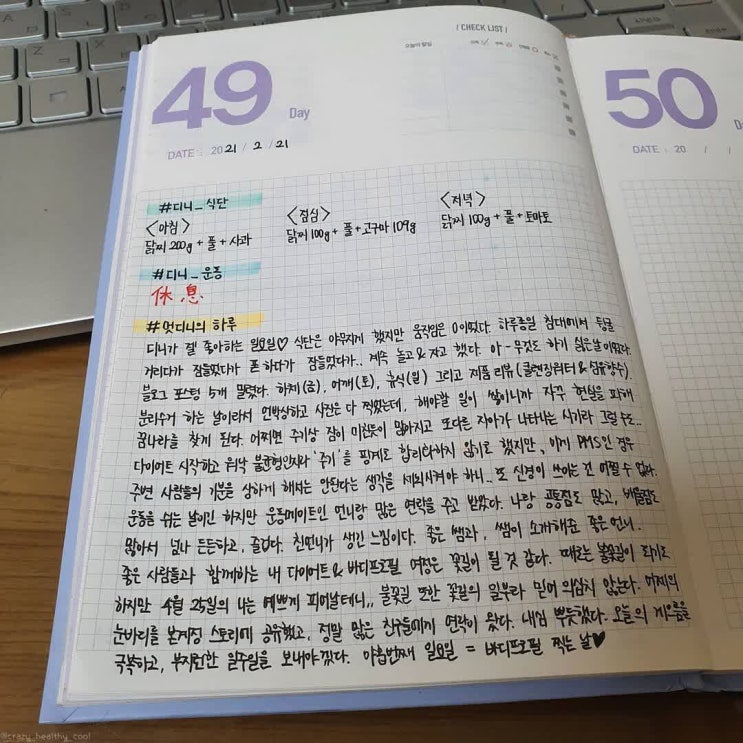 / CHECK LIST /
49 Day
DATE : 2021 / 2 / 21
#디니_식단
<아침>
닭찌 200g + 풀 + 사과
<점심>
닭찌 100g + 풀 + 고구마 109g
<저녁>
닭찌 100g + 풀 + 토마토
#디니_운동
休息
#멋디니의 하루
디니가 젤 좋아하는 일요일♡ 식단은 야무지게 했지만 움직임은 0이었다. 하루종일 침대에서 뒹굴
거리다가 잠들었다가 폰 하다가 잠들었다가.. 계속 놀고&자고 했다. 아-무것도 하기 싫은날이었다.
블로그 포스팅 5개 밀렸다. 하체(금), 어깨(토), 휴식(일) 그리고 제품 리뷰(클렌징워터 & 섬유향수).
분리수거 하는 날이라서 언박싱하고 사진은 다 찍었는데, 해야할 일이 쌓이니까 자꾸 현실을 피해
꿈나라를 찾게 된다. 어쩌면 주기상 잠이 미친듯이 많아지고 또다른 자아가 나타나는 시기라 그럴수도..
다이어트 시작하고 워낙 불균형인지라 '주기'를 핑계로 합리화하지 않기로 했지만, 이게 PMS인 경우
주변 사람들의 기분을 상하게 해서는 안된다는 생각을 세뇌시켜야 하니.. 또 신경이 쓰이는 건 어쩔 수 없다.
운동을 쉬는 날이긴 하지만 운동메이트인 언니랑 많은 연락을 주고 받았다. 나랑 공통점도 많고, 배울점도
많아서 넘나 든든하고, 즐겁다. 친언니가 생긴 느낌이다. 좋은 쌤과, 쌤이 소개해준 좋은 언니.
좋은 사람들과 함께하는 내 다이어트 & 바디프로필 여정은 꽃길이 될 것 같다. 때로는 불꽃길이 되기도
하지만 4월 25일의 나는 예쁘게 피어날테니,, 불꽃길 또한 꽃길의 일부라 믿어 의심치 않는다. 어제의
눈바디를 본계정 스토리에 공유했고, 정말 많은 친구들에게 연락이 왔다. 내심 뿌듯했다. 오늘의 게으름을
극복하고, 부지런한 일주일을 보내야겠다. 아홉번째 일요일 = 바디프로필 찍는 날♥
50
DATE : 20 / /
@crazy_healthy_cool